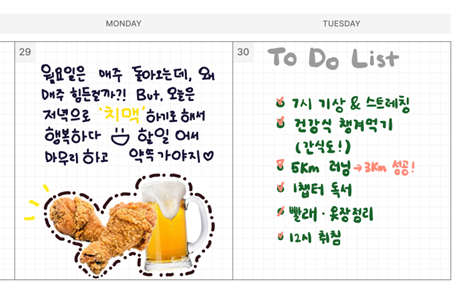 MONDAY
TUESDAY
29
월요일은 매주 돌아오는데, 왜
매주 힘든걸까?! But, 오늘은
저녁으로 '치맥'하기로 해서
행복하다 할일 어서
마무리 하고 약뚝 가야지♡
30
To Do List
7시 기상 & 스트레칭
건강식 챙겨먹기
(간식도!)
5km 러닝 → 3km 성공!
1챕터 독서
빨래 · 옷장정리
12시 취침